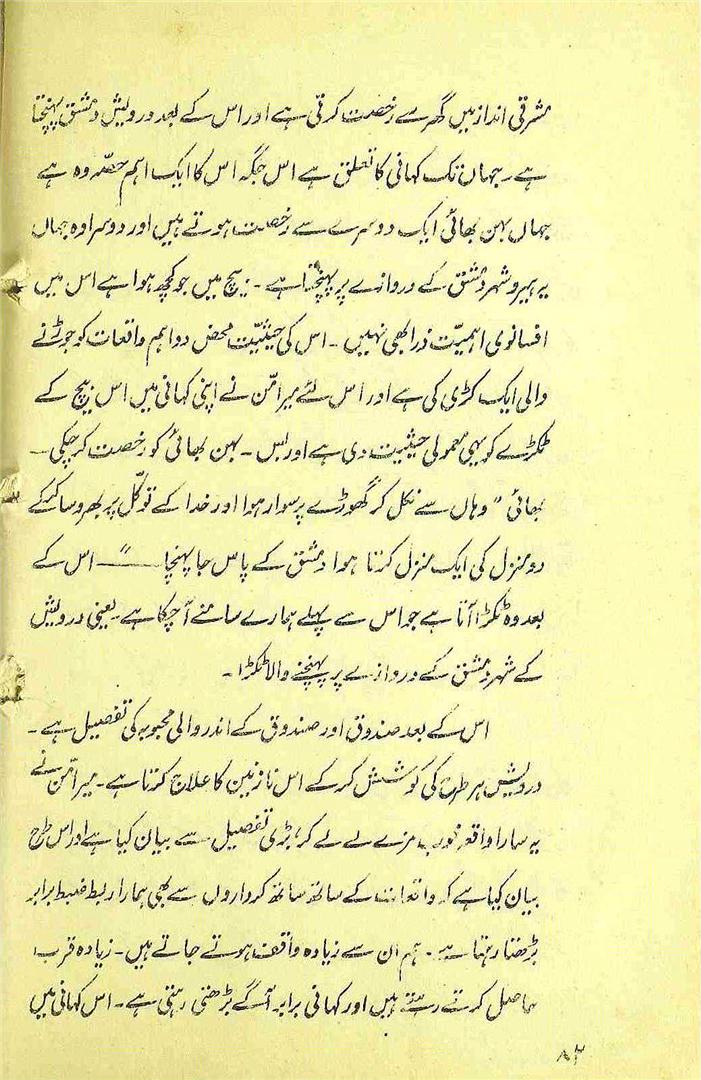 مشرقی انداز میں گھر سے رخصت کرتی ہے اور اس کے بعد درویش دمشق پہنچتا
ہے۔ جہاں تک کہانی کا تعلق ہے اس جگہ اس کا ایک اہم حصّہ وہ ہے
جہاں بہن بھائی ایک دوسرے سے رخصت ہوتے ہیں اور دوسرا وہ جہاں
یہ ہیرو شہر دمشق کے دروازے پر پہنچتا ہے۔ بیچ میں جو کچھ ہوا ہے اس میں
افسانوی اہمیّت ذرا بھی نہیں۔ اس کی حیثیّت محض دو اہم واقعات کو جوڑنے
والی ایک کڑی کی ہے اور اس لئے میر امّن نے اپنی کہانی میں اس بیچ کے
ٹکڑے کو یہی معمولی حیثیت دی ہے اور بس۔ بہن بھائی کو رخصت کر چکی۔
بھائی ”وہاں سے نکل کر گھوڑے پر سوار ہوا اور خدا کے توکّل پر بھروسا کرکے
دو منزل کی ایک منزل کرتا ہوا دمشق کے پاس جا پہنچا ——“ اس کے
بعد وہ ٹکڑا آتا ہے جو اس سے پہلے ہمارے سامنے آ چکا ہے۔ یعنی درویش
کے شہر دمشق کے دروازے پر پہنچنے والا ٹکڑا۔
اس کے بعد صندوق اور صندوق کے اندر والی محبوبہ کی تفصیل ہے۔
درویش ہر طرح کی کوشش کرکے اس نازنین کا علاج کرتا ہے۔ میر امّن نے
یہ سارا واقعہ خوب مزے لے لے کر، بڑی تفصیل سے بیان کیا ہے اور اس طرح
بیان کیا ہے کہ واقعات کے ساتھ ساتھ کرداروں سے بھی ہمارا ربط ضبط برابر
بڑھتا رہتا ہے۔ ہم ان سے زیادہ واقف ہوتے جاتے ہیں۔ زیادہ قرب
حاصل کرتے رہتے ہیں اور کہانی برابر آگے بڑھتی رہتی ہے۔ اس کہانی میں
۸۲